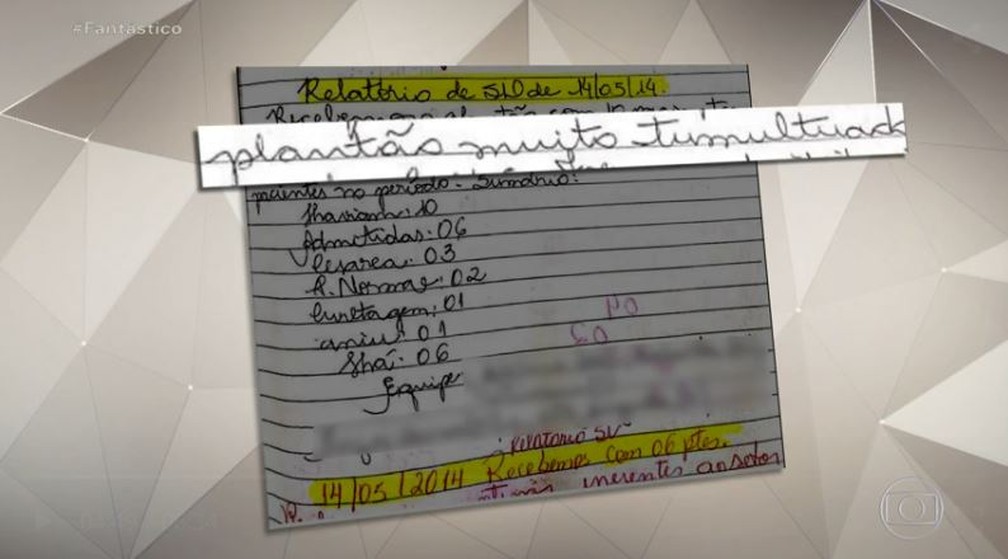 #Fantástico
Relatório de SD de 14/05/14.
plantão muito tumultuad
pacientes no período. Sumário:
10
Admitidas: 06
Cesarea: 03
P. Normal: 02
Curetagem: 01
amiu: 01
06
Equipe
PO
relatorio SN
14/05/2014 Recebemos com 06 ptes.
inerentes ao setor